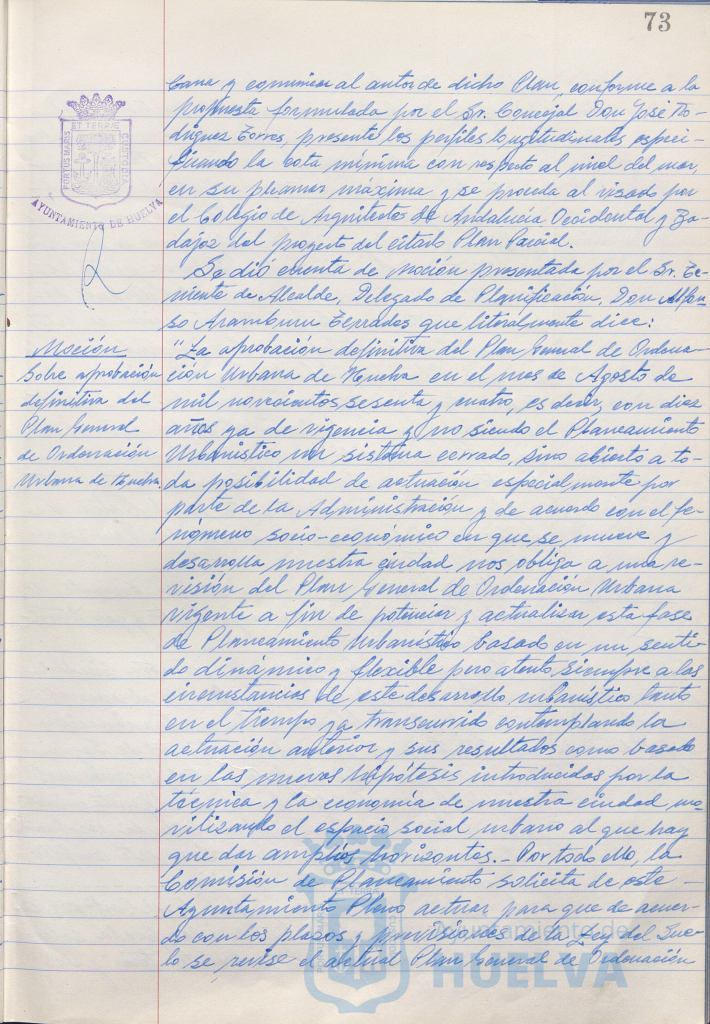 73
bana y comunicar al autor de dicho Plan, conforme a la
propuesta formulada por el Sr. Concejal Don José Ro-
dríguez Torres, presente los perfiles longitudinales especi-
ficando la cota mínima con respecto al nivel del mar,
en su pleamar máxima y se proceda al visado por
el Colegio de Arquitectos de Andalucía Occidental y Ba-
dajoz del proyecto del citado Plan Parcial.
Se dió cuenta de moción presentada por el Sr. Te-
niente de Alcalde, Delegado de Planificación, Don Alfon-
so Aramburu Terrados que literalmente dice:
Moción
sobre aprobación
definitiva del
Plan General
de Ordenación
Urbana de Huelva.
"La aprobación definitiva del Plan General de Ordena-
ción Urbana de Huelva en el mes de Agosto de
mil novecientos sesenta y cuatro, es decir, con diez
años ya de vigencia y no siendo el Planeamiento
Urbanístico un sistema cerrado, sino abierto a to-
da posibilidad de actuación especialmente por
parte de la Administración y de acuerdo con el fe-
nómeno socio-económico en que se mueve y
desarrolla nuestra ciudad nos obliga a una re-
visión del Plan General de Ordenación Urbana
vigente a fin de potenciar y actualizar esta fase
de Planeamiento Urbanístico basado en un senti-
do dinámico y flexible pero atento siempre a las
circunstancias de este desarrollo urbanístico tanto
en el tiempo ya transcurrido contemplando la
actuación anterior y sus resultados como basado
en las nuevas hipótesis introducidas por la
técnica y la economía de nuestra ciudad, mo-
vilizando el espacio social urbano al que hay
que dar amplios horizontes.- Por todo ello, la
Comisión de Planeamiento solicita de este
Ayuntamiento Pleno actuar para que de acuer-
do con los plazos y previsiones de la Ley del Sue-
lo se revise el actual Plan General de Ordenación
ET TERRAE
PORTUS MARIS
CUSTODIA
AYUNTAMIENTO DE HUELVA
Ayuntamiento de
HUELVA